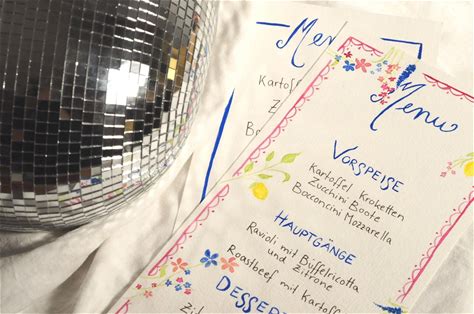 Men
Kartoffe
Zu
B
Menu
VORSPEISE
Kartoffel Kroketten
Zucchini Boote
Bocconcini Mozzarella
HAUPTGÄNGE
Ravioli mit Büffelricotta
und Zitrone
Roastbeef mit Kartoff
DESSER